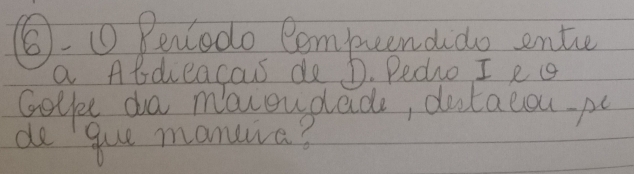 6 - O Período Compreendido entre
a Abdicaçaõ de D. Pedro I e o
Golpe da maioridade, destacou-se
de que maneira?